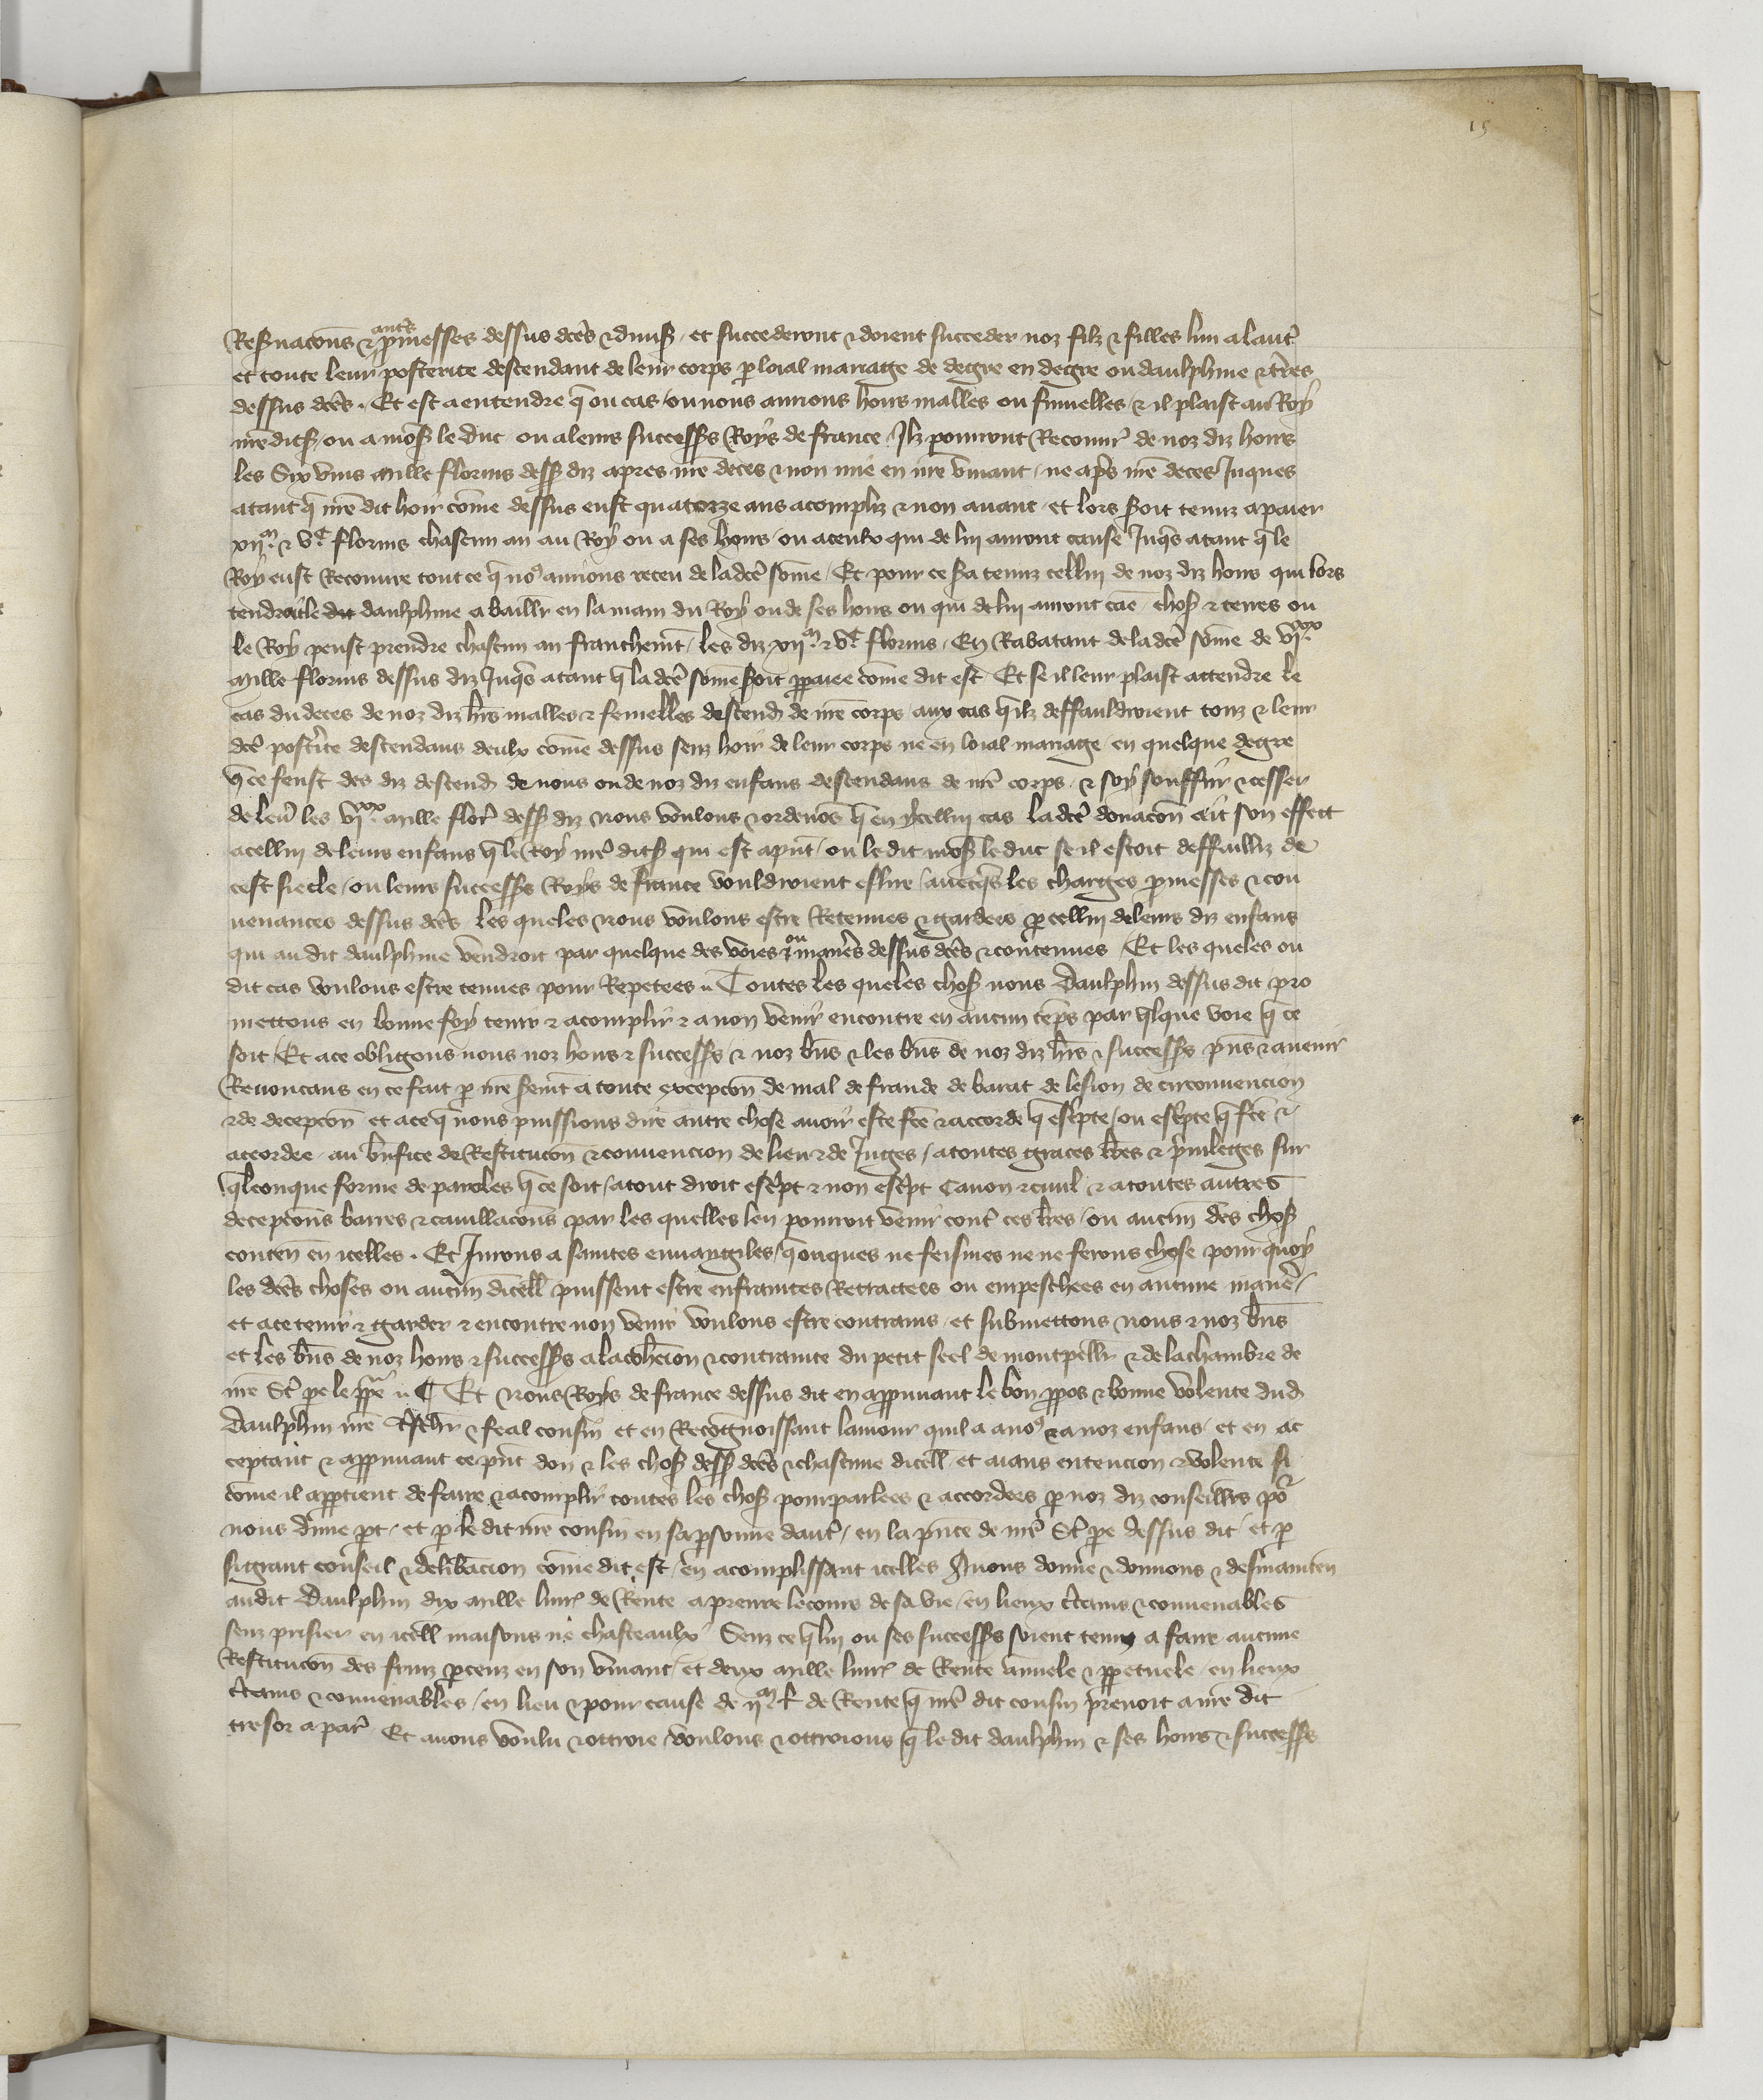 15
autres
Resnacōns & pmesses dessus dces & diuis, et succederont & doient succeder noz filz & filles lun a laut
et toute leur posterite descendant de leur corps p loial mariage de degre en degre ou daulphine & tres
dessus dces. Et est a entendre q ou cas / ou nous aurions hoirs malles ou fumelles / & il plaist au Roy
nre dit s / ou a mos le duc ou a leurs successs Roys de france Ilz pourront Recouur de noz diz hoirs
les Six vins mille florins dess diz apres nre deces & non mie en nre viuant / ne aps nre deces Iuques
atant q nre dit hoir come dessus eust quatorze ans acompliz & non auant / et lors soit tenuz a paier
xii.m & v.c florins chascun an au Roy ou a ses hoirs / ou a ceulx qui de lui auront cause Iuqs atant q le
Roy eust Recouure tout ce q no9 aurions receu de ladce some / Et pour ce sa tenuz cellui de noz diz hoirs qui lors
tendroit le dit daulphine a baillr en la main du Roy ou de ses hoirs ou qui de lui auront cae / chos & terres ou
le Roy peust prendre chascun an franchemt / les diz xii.m & v.c florins / En Rabatant de la dce some de vi.xx
mille florins dessus diz Iuqs atant q la dce some soit ppaiee come dit est / Et se il leur plaist attendre le
cas du deces de noz diz hrs malles & femelles descend de nre corps / aux cas q ilz deffauldroient touz & leur
dce postite descendans deulx come dessus senz hoir de leur corps ne en loial mariage / en quelque degre
q ce feust des diz descend de nous ou de noz diz enfans descendans de nre corps / & soy souffrir & cesser
de leur les vi.xx mille flor dess diz nous voulons & ordenos q en ycellui cas la dce donacon ait son effect
a cellui de leurs enfans q le Roy nre dit s qui est a pnt / ou le dit mos le duc se il estoit deffailliz de
cest siecle / ou leurs successs Roys de france vouldroient eslire / auecqs les charges pmesses & con
uenances dessus dces les queles nous voulons estre Retenues & gardees p cellui de leurs diz enfans
qui au dit daulphine vendroit par quelque des voies & ou maners dessus dces & contenues Et les queles ou
dit cas voulons estre tenues pour Repetees. Toutes les queles chos nous Daulphin dessus dit / pro
mettons en bonne foy tenir & acomplir & a non venir encontre en aucun teps par qlque voie q ce
soit / Et a ce obligons nous noz hoirs & successs / & noz bns & les bns de noz diz hrs & successs pns & auenir
Renoncans en ce fait p nre sermt a toute excepcon de mal de fraude de barat de lesion de circonuencion
& de decepcon et a ce q nous puissions dire autre chose auoir este fce & accorde q escpte / ou escpte q fce &
accordee / au bnfice de Restitucon & conuencion de lieu & de Iuges / a toutes graces lres & priuileges sur
qlconque forme de paroles q ce soit / a tout droit escpt & non escpt Canon & ciuil & a toutes autres
decepcons barres & cauillacons par les quelles len pourroit venir cont ces lres / ou aucun des chos
conten en icelles. Et Iurons a saintes euuangiles / q onques ne feismes ne ne ferons chose pour quoy
les dces choses ou aucun dicell puissent estre enfraintes Retractees ou empeschees en aucune maner /
et a ce tenir & garder & encontre non venir voulons estre contrains / et submettons nous & noz bns
et les bns de noz hoirs & successs a la cohcion & contrainte du petit seel de montpellir & de la chambre de
nre St pe le ppe. ¶ Et nous Roys de france dessus dit en appuuant le bon ppos & bonne volente dud
Daulphin nre chr & feal cousin et en Recognoissant lamour quil a a no9 & a noz enfans / et en ac
ceptant & appuuant ce pnt don & les chos dess dces & chascune dicell / et aians entencion & volente si
come il apptient de faire & acomplir toutes les chos pourparlees & accordees p noz diz conseillrs po
nous dune pt / et p le dit nre cousin en sa psonne daut / en la pnce de nre St pe dessus dit / et p
si grant conseil & delibacion come dit est / en acomplissant icelles Auons donne & donnons & desmainten
au dit Daulphin dix mille liur de Rente a prenre le cours de sa vie / en lieux ctains & conuenables
senz prisier en icell maisons ne chasteaulx Senz ce q lui ou ses successs soient tenuz a faire aucune
Restitucon des fruiz pceuz en son viuant / et deux mille liur de Rente annuele & ppetuele / en lieux
ctains & conuenables / en lieu & pour cause de ii.m l de Rente q nre dit cousin prenoit a nre dit
tresor a par Et auons voulu & ottroie voulons & ottroions q le dit daulphin & ses hoirs & successs